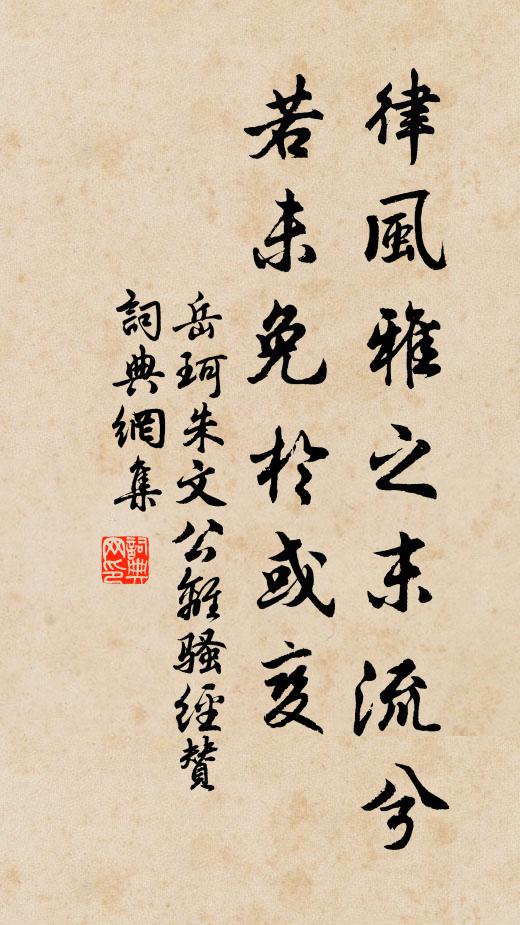 律風雅之末流兮
若未免於或变
岳珂朱文公離騷經贊
詞典網集
詞典网印